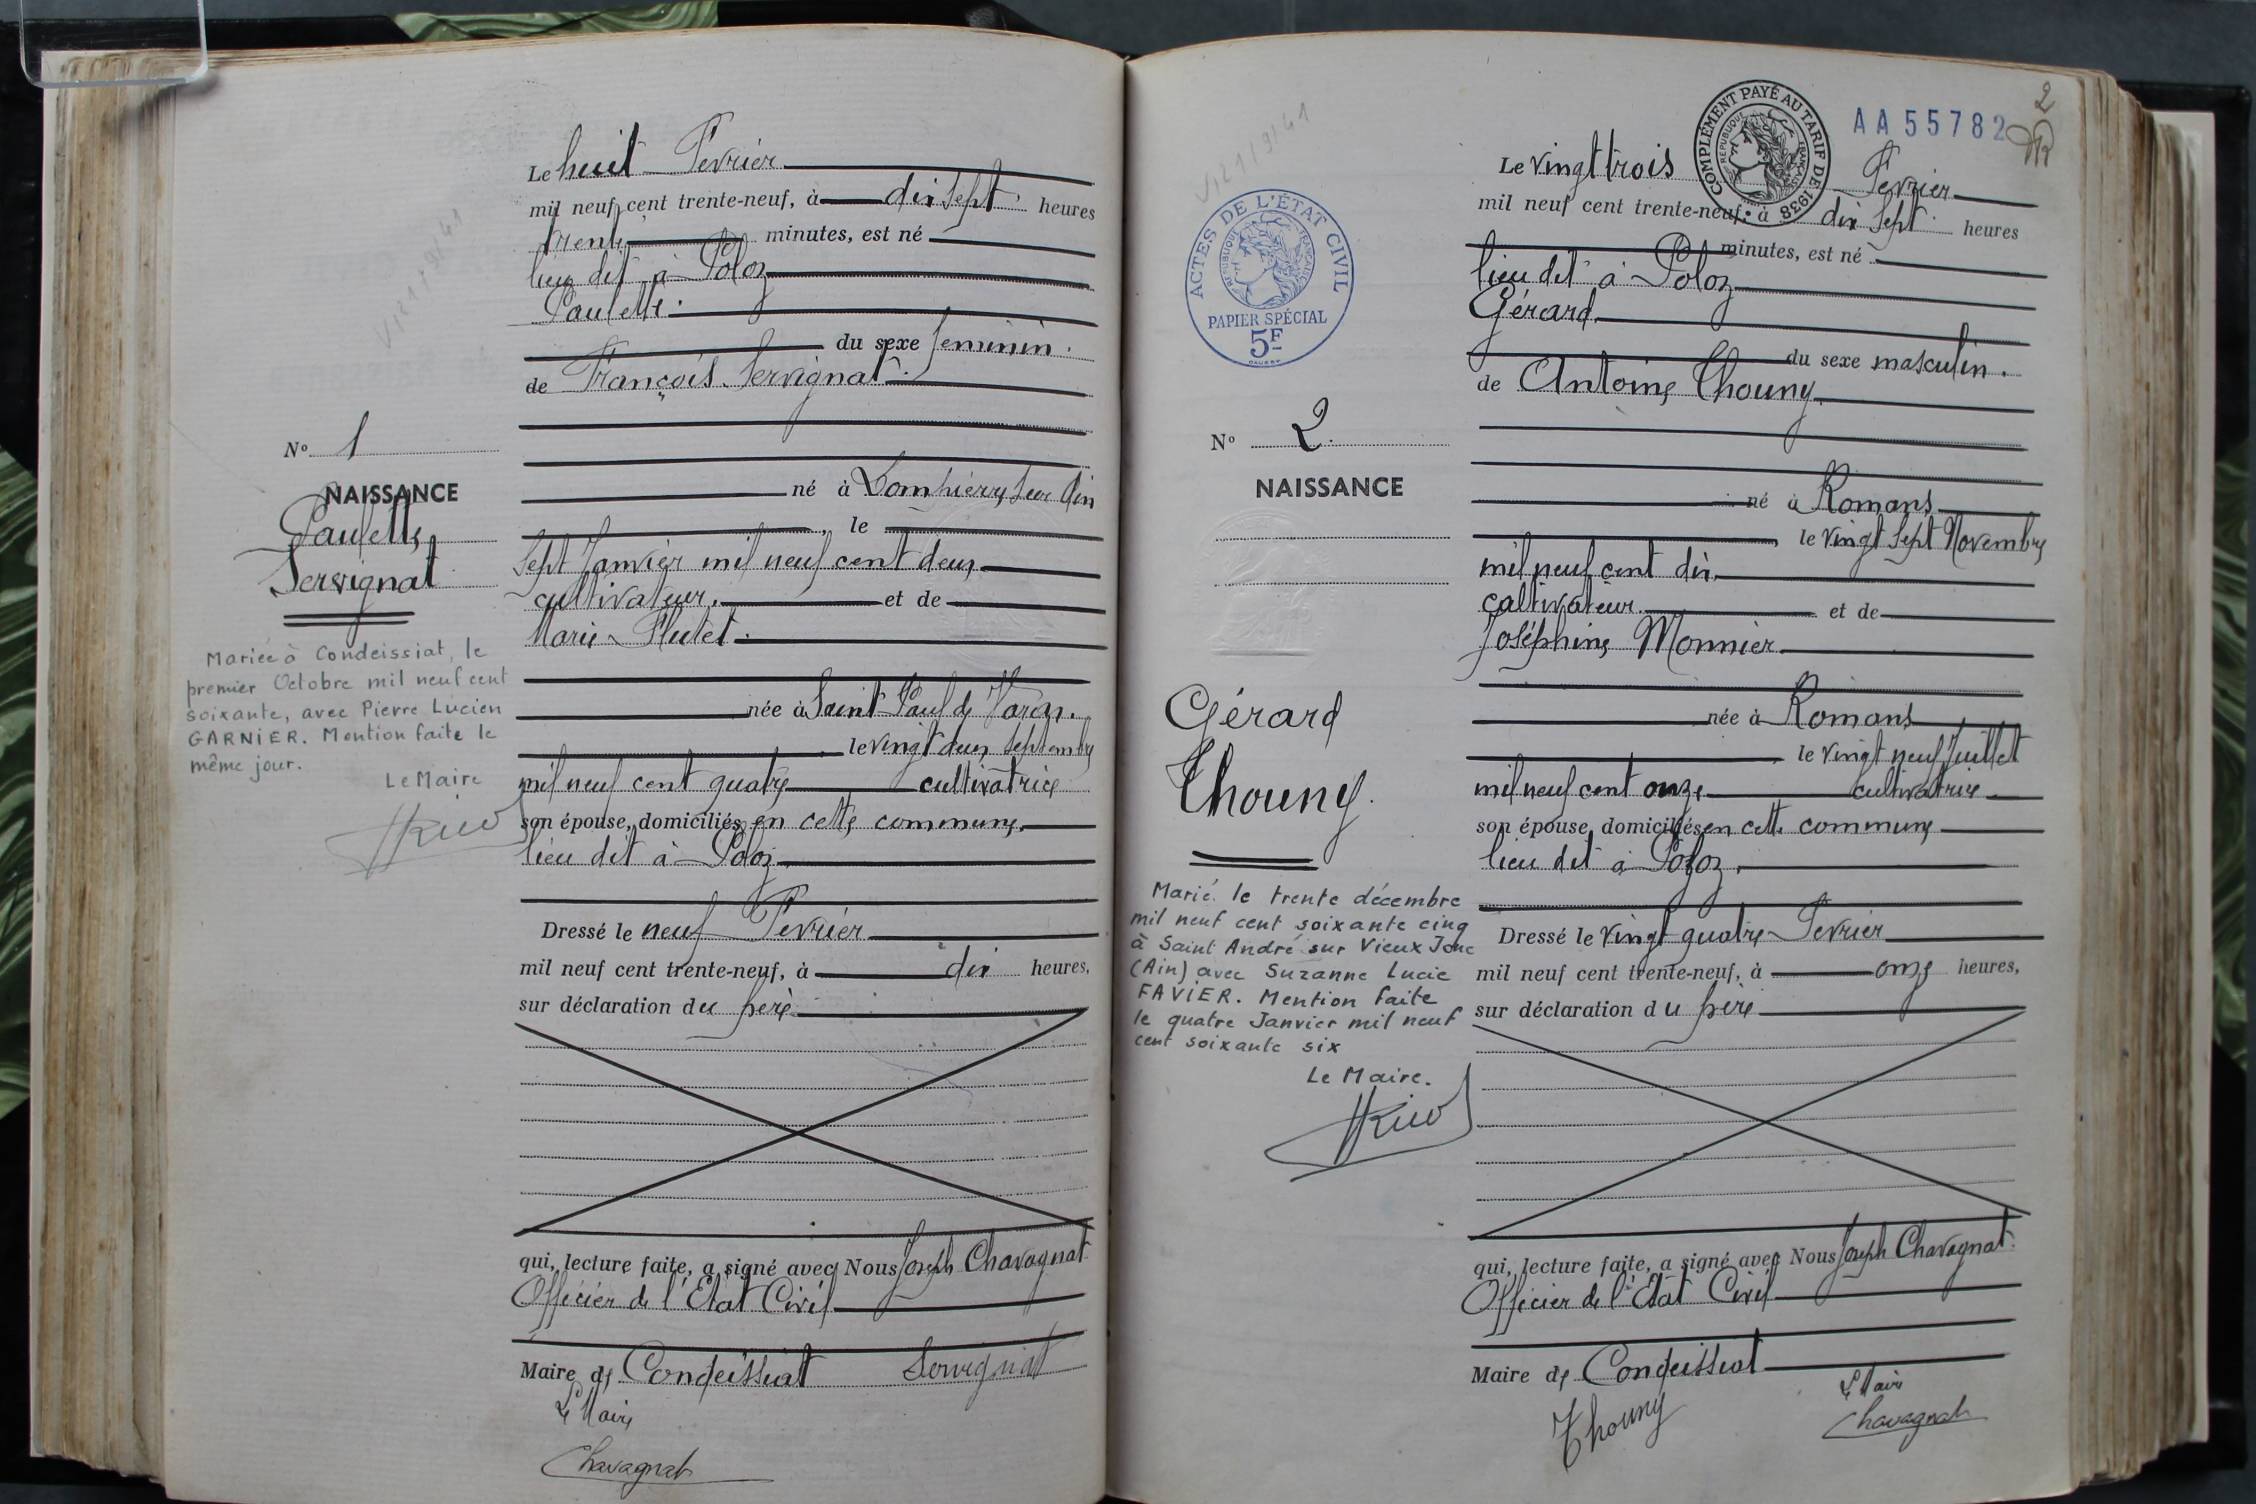 Le huit Fevrier
mil neuf cent trente-neuf, à dix sept heures
trente minutes, est né
lieu dit à Poloz
Paulette.
du sexe feminin.
de François Servignat.
né à Dompierre sur Ain
, le
Sept Janvier mil neuf cent deux
cultivateur. et de
Marie Flutet.
née à Saint Paul de Varax.
le vingt deux Septembre
mil neuf cent quatre cultivatrice
son épouse, domiciliés en cette commune.
lieu dit à Poloz.
Dressé le neuf Fevrier
mil neuf cent trente-neuf, à dix heures,
sur déclaration du père
qui, lecture faite, a signé avec Nous Joseph Chavagnat
Officier de l'État Civil
Maire de Condeissiat Servignat
Le Maire
Chavagnat
V121/9/41
No 1
NAISSANCE
Paulette
Servignat
Mariée à Condeissiat, le
premier Octobre mil neuf cent
soixante, avec Pierre Lucien
GARNIER. Mention faite le
même jour.
Le Maire
2
AA55782
COMPLÉMENT PAYÉ AU TARIF DE 1938
RÉPUBLIQUE FRANÇAISE
Le vingt trois Fevrier
mil neuf cent trente-neuf, à dix sept heures
minutes, est né
lieu dit à Poloz
Gérard
du sexe masculin.
de Antoine Thouny.
né à Romans
, le vingt sept Novembre
mil neuf cent dix
cultivateur. et de
Joséphine Monnier
née à Romans
le vingt neuf Juillet
mil neuf cent onze cultivatrice
son épouse, domiciliés en cette commune
lieu dit à Poloz.
Dressé le vingt quatre Fevrier
mil neuf cent trente-neuf, à onze heures,
sur déclaration du père
qui, lecture faite, a signé avec Nous Joseph Chavagnat.
Officier de l'État Civil
Maire de Condeissiat
Thouny
Le Maire
Chavagnat
V121/9/41
ACTES DE L'ÉTAT CIVIL
RÉPUBLIQUE FRANÇAISE
PAPIER SPÉCIAL
5F
No 2.
NAISSANCE
Gérard
Thouny.
Marié le trente décembre
mil neuf cent soixante cinq
à Saint André sur Vieux Jonc
(Ain) avec Suzanne Lucie
FAVIER. Mention faite
le quatre Janvier mil neuf
cent soixante six
Le Maire.